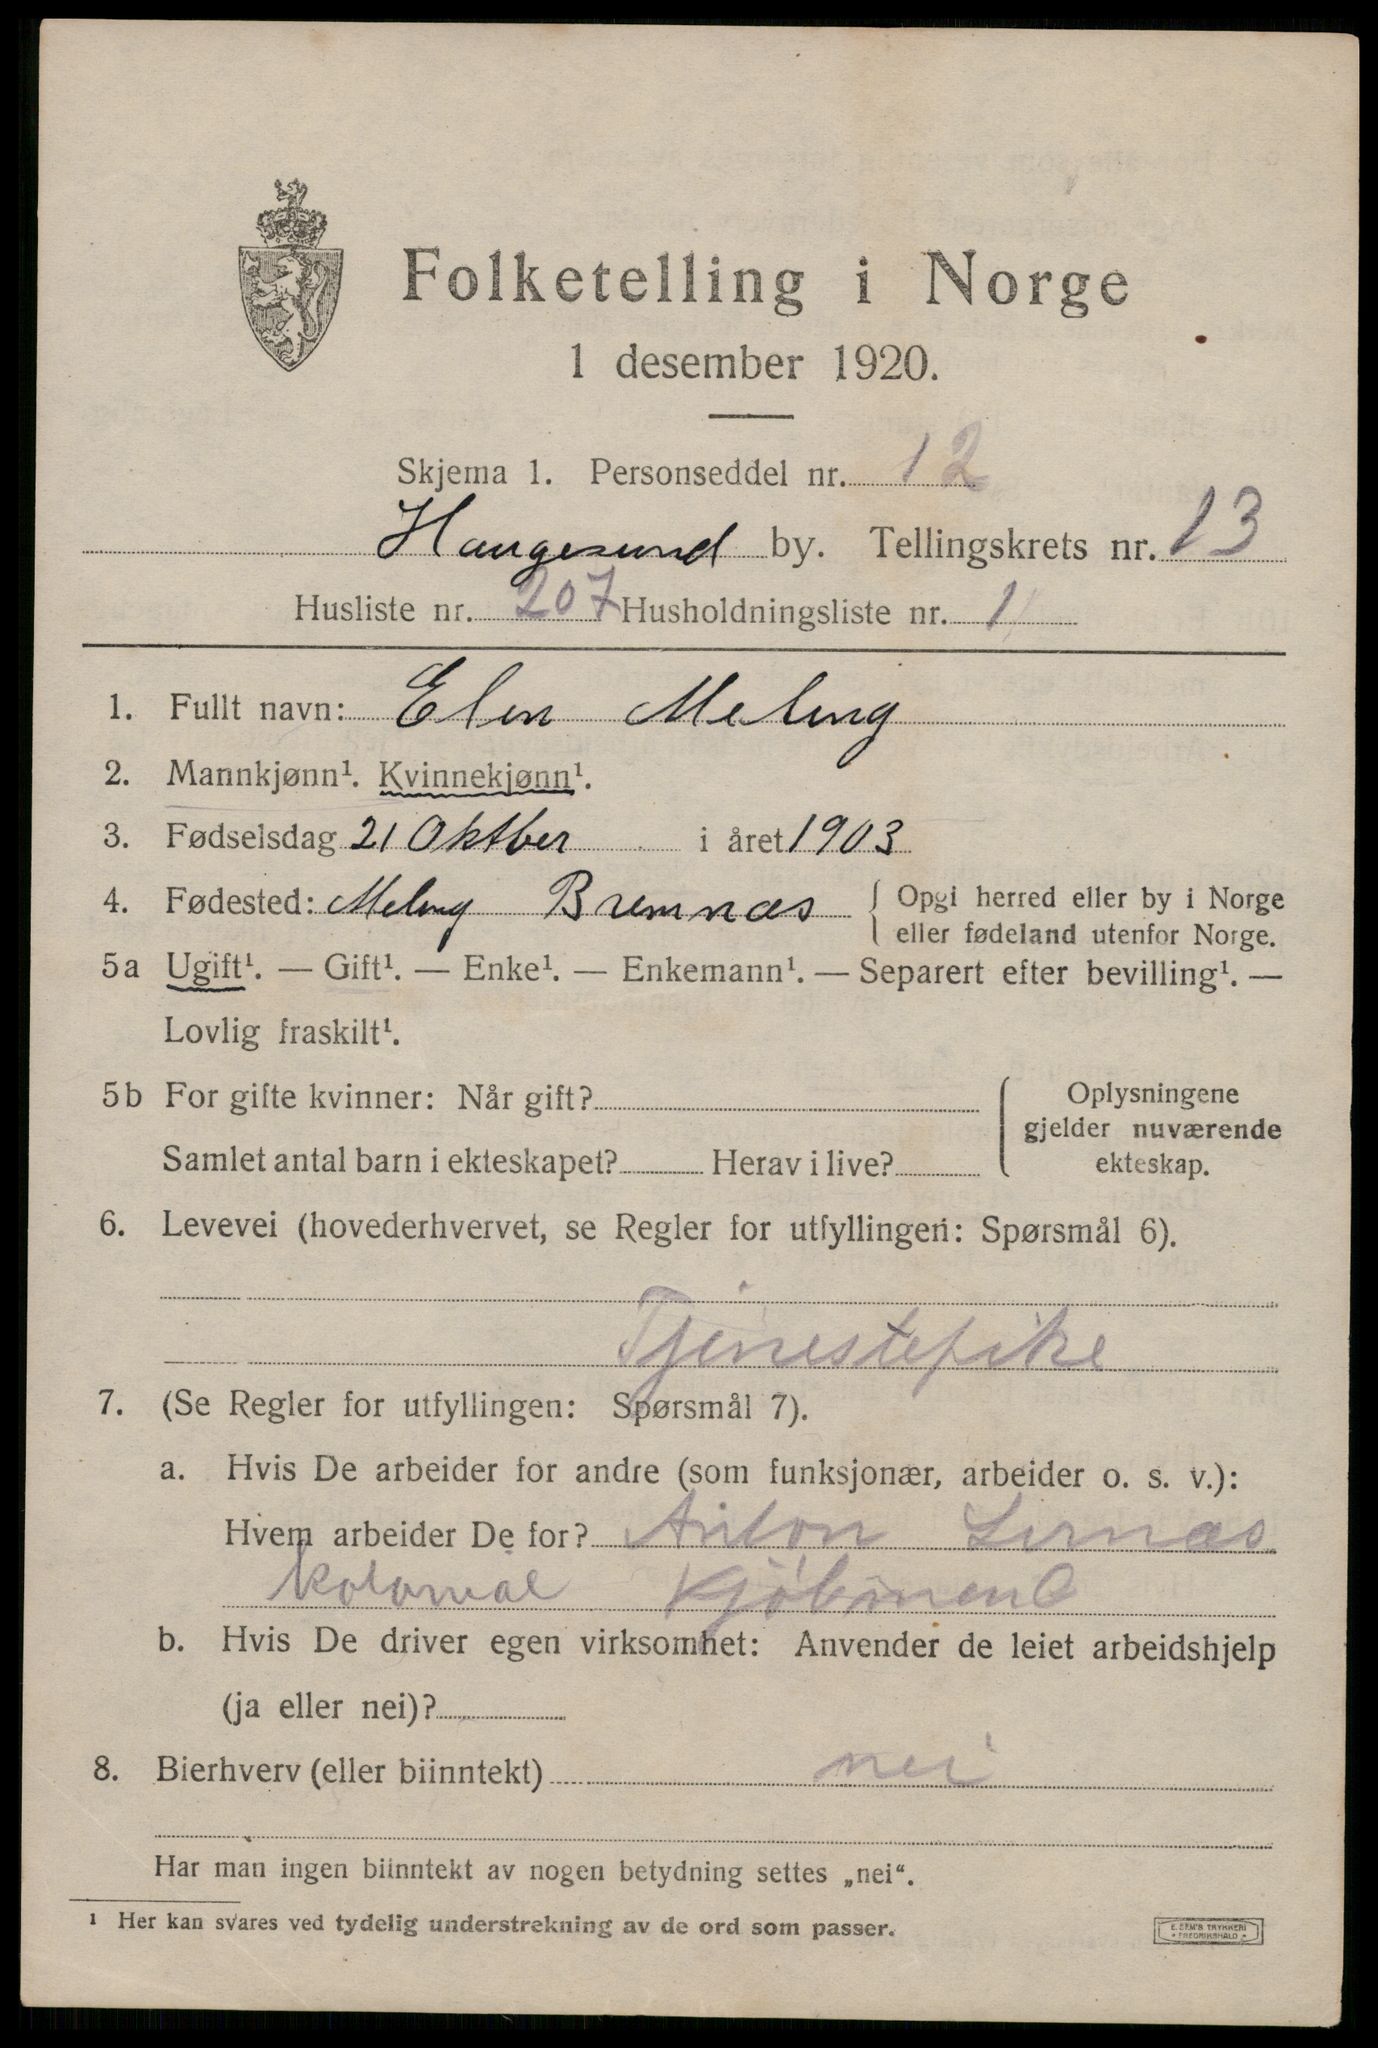 Folketelling i Norge
1 desember 1920.
Skjema 1. Personseddel nr. 12
Haugesund by. Tellingskrets nr. 13
Husliste nr. 207 Husholdningsliste nr. 1
1. Fullt navn: Elen Meling
2. Mannkjønn¹. Kvinnekjønn¹.
3. Fødselsdag 21 Oktber i året 1903
4. Fødested: Meling Bremnas { Opgi herred eller by i Norge
eller fødeland utenfor Norge.
5a Ugift¹. — Gift¹. — Enke¹. — Enkemann¹. — Separert efter bevilling¹. —
Lovlig fraskilt¹.
5b For gifte kvinner: Når gift?
Samlet antal barn i ekteskapet? Herav i live?
Oplysningene
gjelder nuværende
ekteskap.
6. Levevei (hovederhvervet, se Regler for utfyllingen: Spørsmål 6).
Tjenestepike
7. (Se Regler for utfyllingen: Spørsmål 7).
a. Hvis De arbeider for andre (som funksjonær, arbeider o. s. v.):
Hvem arbeider De for? Anton
kolonial
b. Hvis De driver egen virksomhet: Anvender de leiet arbeidshjelp
(ja eller nei)?
8. Bierhverv (eller biinntekt) nei
Har man ingen biinntekt av nogen betydning settes „nei“.
¹ Her kan svares ved tydelig understrekning av de ord som passer.
E. SEM'S TRYKKERI
FREDRIKSHALD